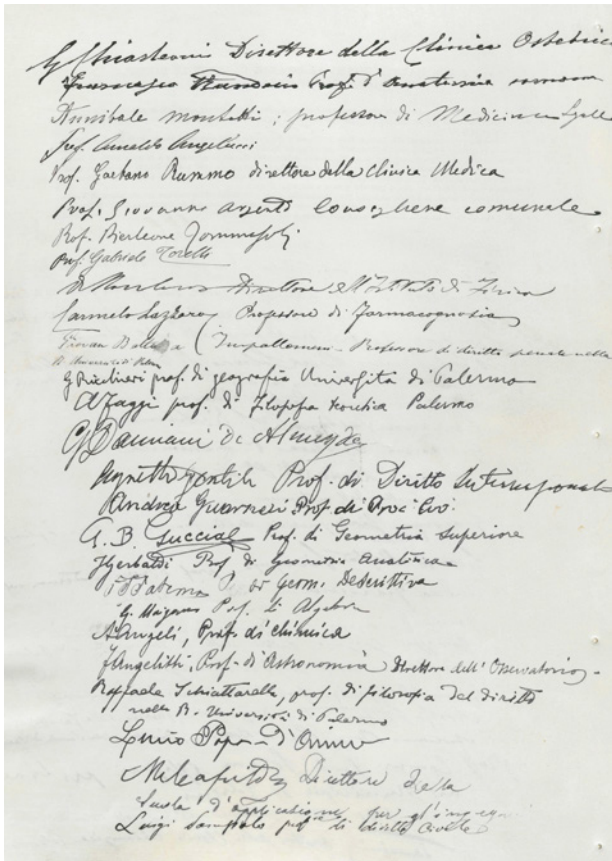 G Chiarleoni Direttore della Clinica Ostetrica
Francesco Randacio Prof. d'Anatomia
Annibale Montalti; professore di Medicina Legale
Prof. Arnaldo Angelucci
Prof. Gaetano Rummo direttore della Clinica Medica
Prof. Giovanni Argento Consigliere comunale
Prof. Pierleone Tommasoli
Prof. Gabriele Torelli
Direttore dell'Istituto di Fisica
Carmelo Lazzaro Professore di Farmacognosia
Giovan Battista Impallomeni Professore di diritto penale nella
R. Università di Palermo
G Ricchieri prof. di geografia Università di Palermo
A Faggi prof. di Filosofia teoretica Palermo
G Damiani de Almeyda
Agnetta Gentile Prof. di Diritto Internazionale
Andrea Guarneri Prof di Proc. Civ.
G. B. Guccia Prof. di Geometria superiore
F Gerbaldi Prof. di Geometria Analitica
Paterno Geom. Descrittiva
G. Maisano Prof. di Algebra
A Angeli, Prof. di Chimica
F Angelitti, Prof. di Astronomia Direttore dell'Osservatorio
Raffaele Schiattarella, prof. di filosofia del diritto
nella R. Università di Palermo
Direttore della
Scuola d'applicazione per gl'ingegneri
Luigi Sampolo profre di diritto Civile